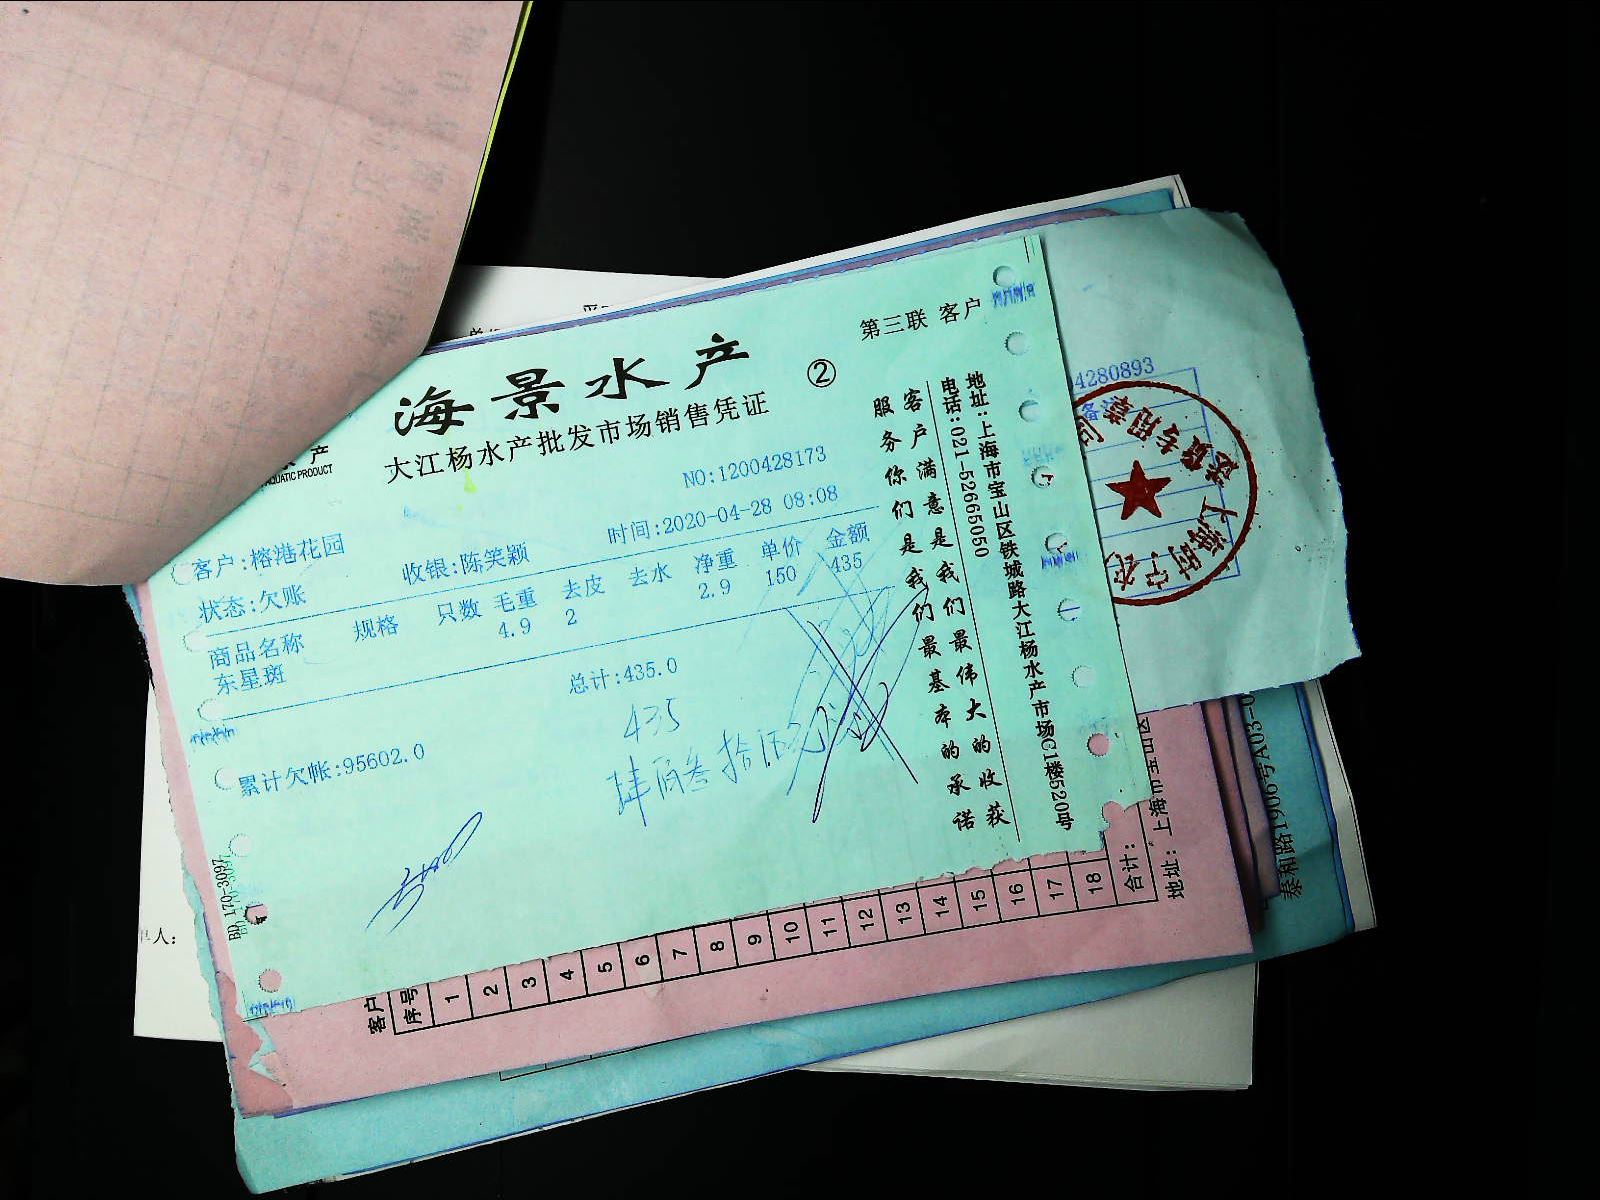 第三联 客户
海景水产
②
大江杨水产批发市场销售凭证
产
AQUATIC PRODUCT
NO:1200428173
客户:榕港花园
收银:陈笑颖
时间:2020-04-28 08:08
状态:欠账
商品名称 规格 只数 毛重 去皮 去水 净重 单价 金额
东星斑 4.9 2 2.9 150 435
总计:435.0
435
肆佰叁拾伍元
累计欠帐:95602.0
客户满意是我们最伟大的收获
服务你们是我们最基本的承诺
地址:上海市宝山区铁城路大江杨水产市场G1楼520号
电话:021-52665050
BD 170-3097
4280893
送货专用章
客户
序号 1 2 3 4 5 6 7 8 9 10 11 12 13 14 15 16 17 18 合计:
地址:上海市宝山区
泰和路1906号A03-0
人: